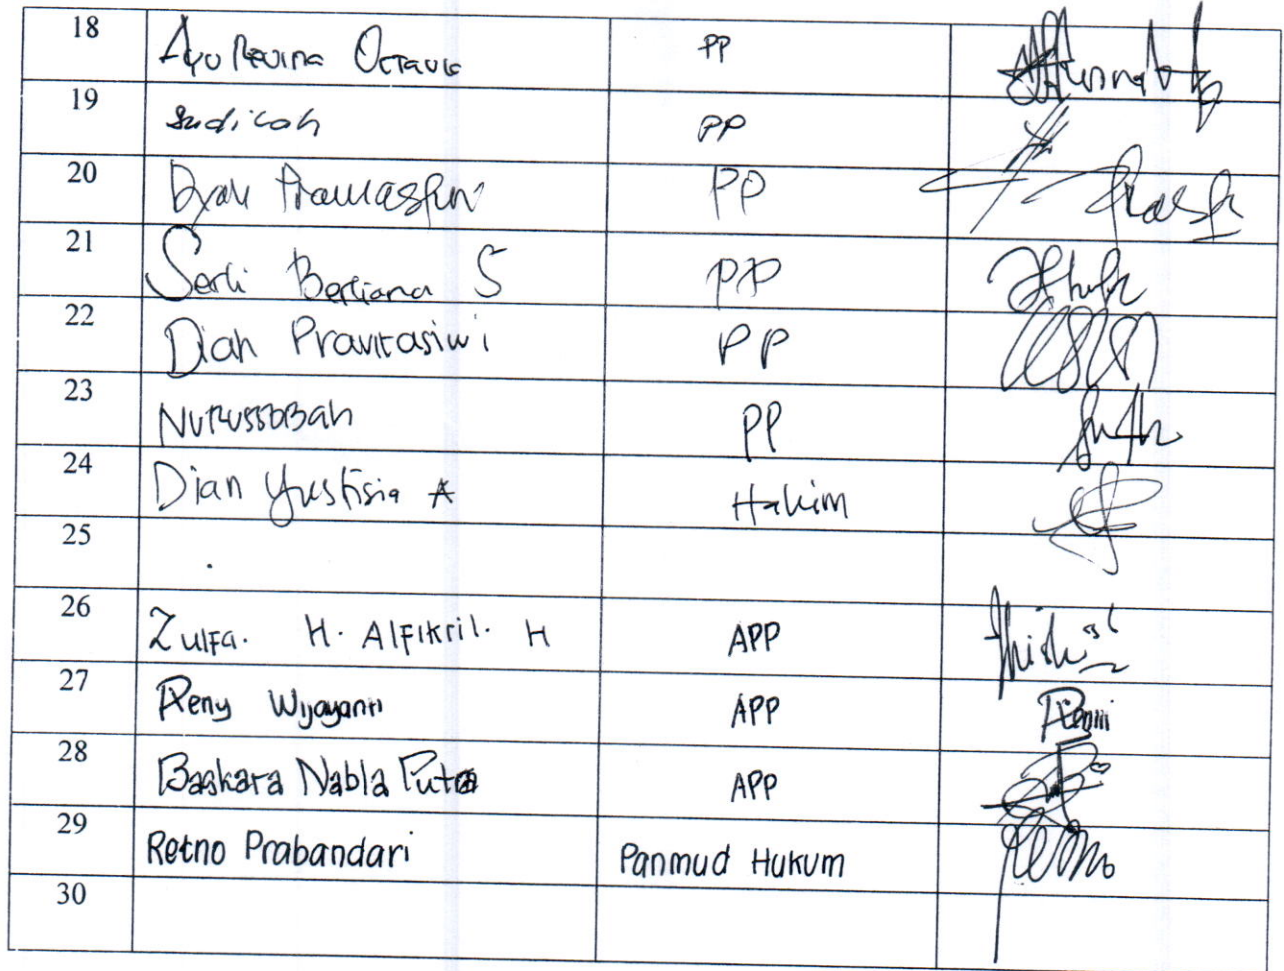 18 Ayu Revina Octavia PP
19 Sudikah PP
20 Dyah PP
21 Serli Berliana S PP
22 Diah Pravitasiwi PP
23 NURUSSOBAH PP
24 Dian Yustisia A Hakim
25
26 Zulfa. H. Alfikril. H APP
27 Reny Wijayanti APP
28 Baskara Nabla Putra APP
29 Retno Prabandari Panmud Hukum
30